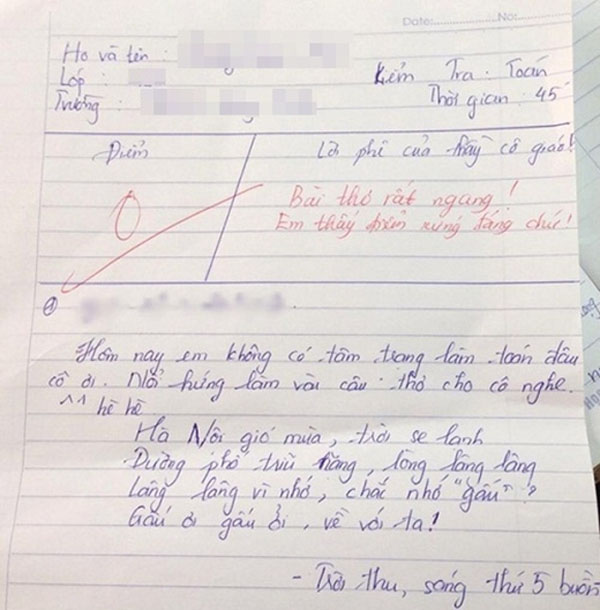 Date: No:
Họ và tên :
Lớp :
Trường :
Kiểm Tra : Toán
Thời gian : 45'
Điểm
Lời phê của thầy cô giáo!
0
Bài thơ rất ngang!
Em thấy điểm xứng đáng chứ!
Hôm nay em không có tâm trạng làm toán đâu
cô ơi. Nổi hứng làm vài câu thơ cho cô nghe.
^^ hề hề
Hà Nội gió mùa, trời se lạnh
Đường phố trĩu nặng, lòng lâng lâng
Lâng lâng vì nhớ, chắc nhớ "gấu"?
Gấu ơi gấu ởi, về với ta!
- Trời thu, sáng thứ 5 buồn